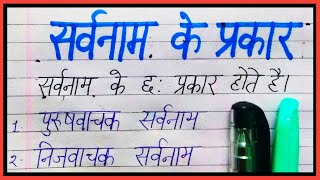 सर्वनाम के प्रकार
सर्वनाम के छः प्रकार होते है।
1. पुरुषवाचक सर्वनाम
२. निजवाचक सर्वनाम